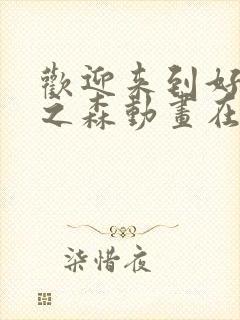 歡迎来到好
之森動畫在
柒惜夜